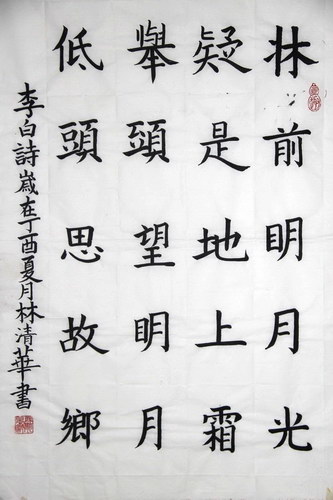 牀前明月光
疑是地上霜
舉頭望明月
低頭思故鄉
李白詩嵗在丁酉夏月林清華書